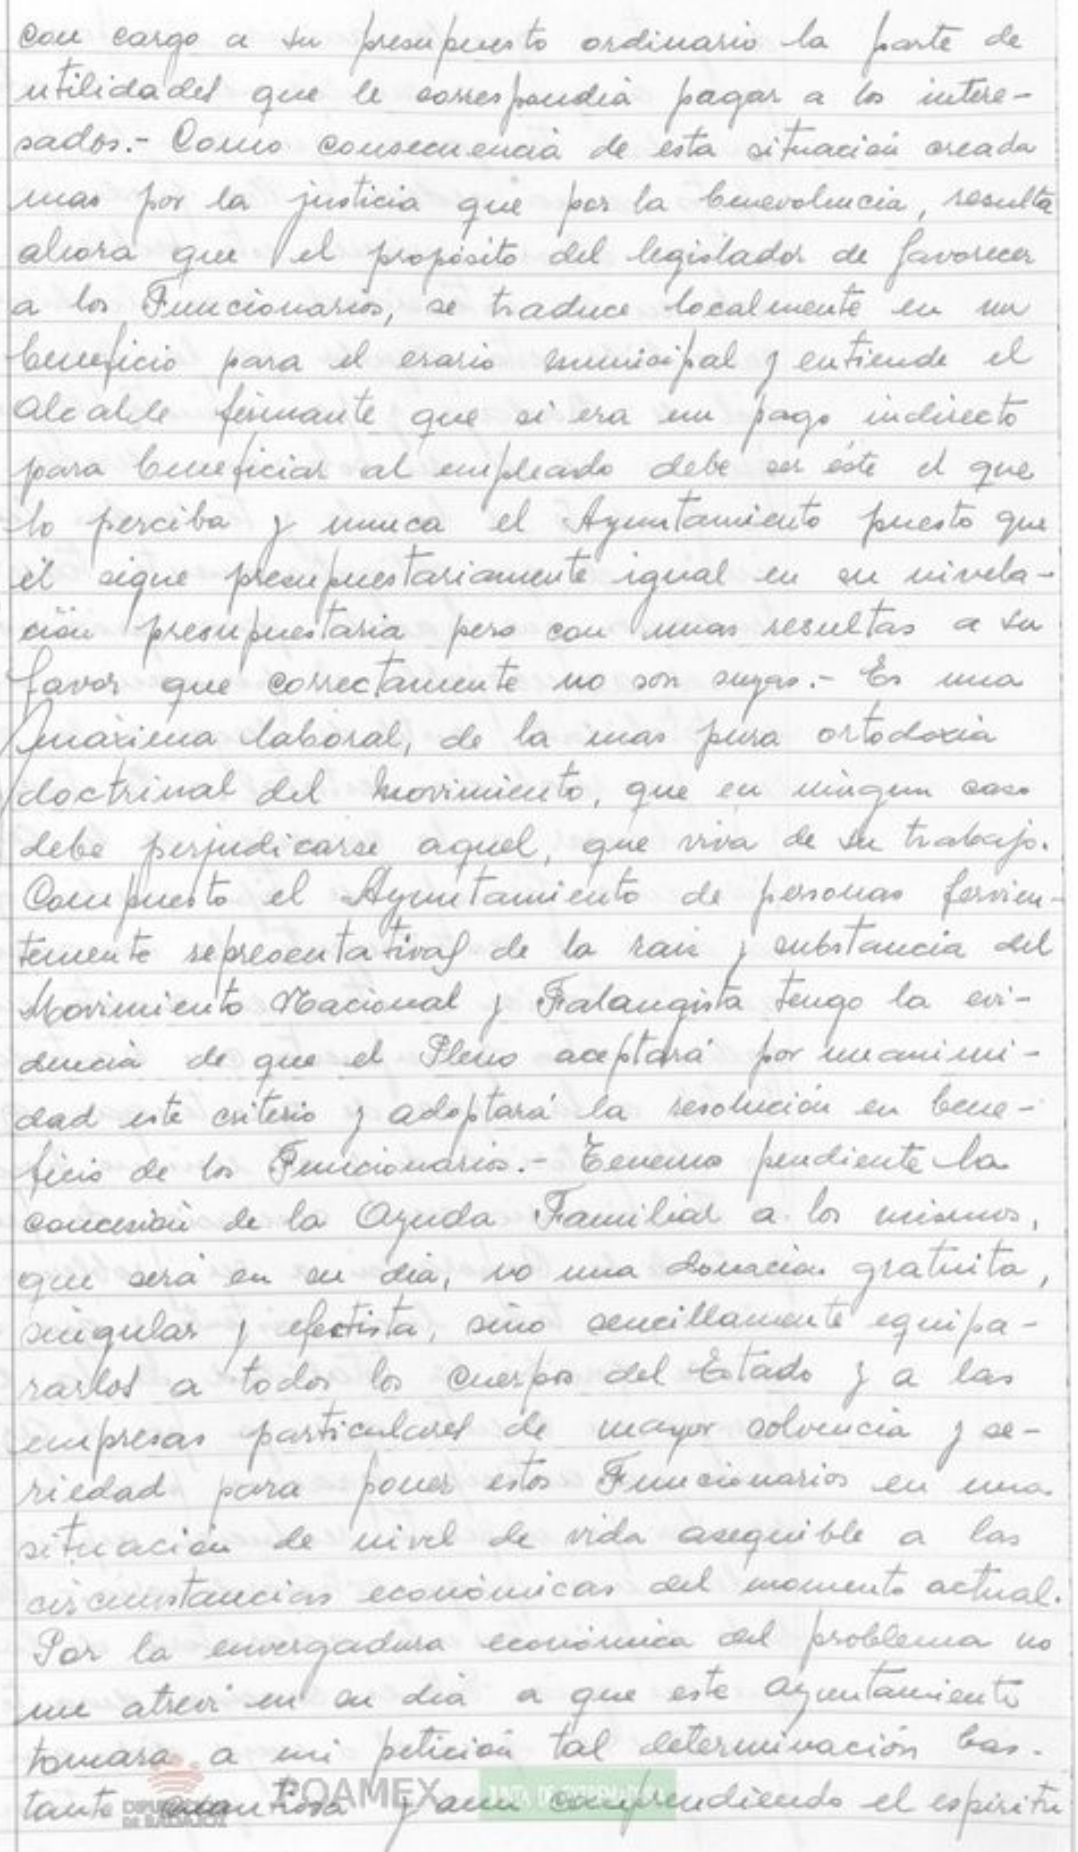 con cargo a su presupuesto ordinario la parte de
utilidades que le correspondia pagar a los intere-
sados.- Como consecuencia de esta situación creada
mas por la justicia que por la benevolencia, resulta
ahora que el propósito del legislador de favorecer
a los Funcionarios, se traduce localmente en un
beneficio para el erario municipal y entiende el
Alcalde firmante que si era un pago indirecto
para beneficiar al empleado debe ser éste el que
lo perciba y nunca el Ayuntamiento puesto que
él sigue presupuestariamente igual en su nivela-
ción presupuestaria pero con unas resultas a su
favor que correctamente no son suyas.- Es una
máxima laboral, de la mas pura ortodoxia
doctrinal del Movimiento, que en ningun caso
debe perjudicarse aquel, que viva de su trabajo.
Compuesto el Ayuntamiento de personas fervien-
temente representativas de la raiz y substancia del
Movimiento Nacional y Falangista tengo la evi-
dencia de que el Pleno aceptará por unanimi-
dad este criterio y adoptará la resolución en bene-
ficio de los Funcionarios.- Tenemos pendiente la
concesión de la Ayuda Familiar a los mismos,
que será en su dia, no una donación gratuita,
singular y efectista, sino sencillamente equipa-
rarlos a todos los Cuerpos del Estado y a las
empresas particulares de mayor solvencia y se-
riedad para poner estos Funcionarios en una
situación de nivel de vida asequible a las
circunstancias económicas del momento actual.
Por la envergadura económica del problema no
me atreví en su dia a que este Ayuntamiento
tomara a mi petición tal determinación bas-
tante cuantiosa y aun comprendiendo el espiritu
POAMEX
DE BADAJOZ